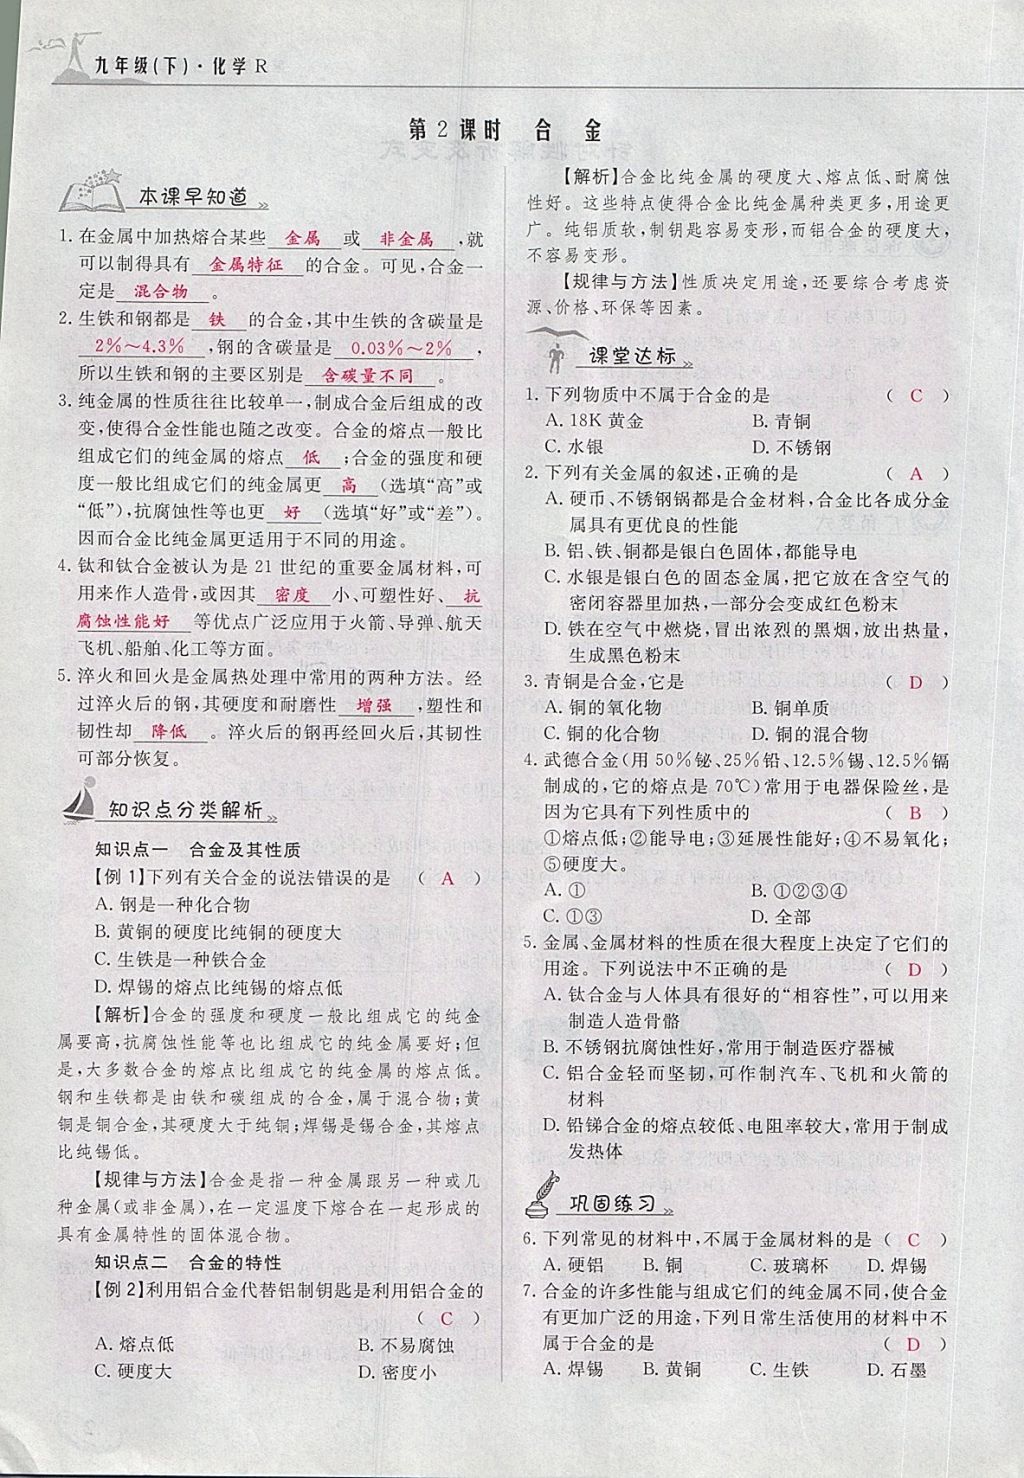 九年级(下)·化学 R
第2课时 合 金
本课早知道
1. 在金属中加热熔合某些 金属 或 非金属 ,就
可以制得具有 金属特征 的合金。可见,合金一
定是 混合物 。
2. 生铁和钢都是 铁 的合金,其中生铁的含碳量是
2%～4.3% ,钢的含碳量是 0.03%～2% ,
所以生铁和钢的主要区别是 含碳量不同 。
3. 纯金属的性质往往比较单一,制成合金后组成的改
变,使得合金性能也随之改变。合金的熔点一般比
组成它们的纯金属的熔点 低 ;合金的强度和硬
度一般比组成它们的纯金属更 高 (选填“高”或
“低”),抗腐蚀性等也更 好 (选填“好”或“差”)。
因而合金比纯金属更适用于不同的用途。
4. 钛和钛合金被认为是 21 世纪的重要金属材料,可
用来作人造骨,或因其 密度 小、可塑性好、 抗
腐蚀性能好 等优点广泛应用于火箭、导弹、航天
飞机、船舶、化工等方面。
5. 淬火和回火是金属热处理中常用的两种方法。经
过淬火后的钢,其硬度和耐磨性 增强 ,塑性和
韧性却 降低 。淬火后的钢再经回火后,其韧性
可部分恢复。
知识点分类解析
知识点一 合金及其性质
【例 1】下列有关合金的说法错误的是 ( A )
A. 钢是一种化合物
B. 黄铜的硬度比纯铜的硬度大
C. 生铁是一种铁合金
D. 焊锡的熔点比纯锡的熔点低
【解析】合金的强度和硬度一般比组成它的纯金
属要高,抗腐蚀性能等也比组成它的纯金属要好;但
是,大多数合金的熔点比组成它的纯金属的熔点低。
钢和生铁都是由铁和碳组成的合金,属于混合物;黄
铜是铜合金,其硬度大于纯铜;焊锡是锡合金,其熔点
比纯锡低。
【规律与方法】合金是指一种金属跟另一种或几
种金属(或非金属),在一定温度下熔合在一起形成的
具有金属特性的固体混合物。
知识点二 合金的特性
【例 2】利用铝合金代替铝制钥匙是利用铝合金的
( C )
A. 熔点低 B. 不易腐蚀
C. 硬度大 D. 密度小
【解析】合金比纯金属的硬度大、熔点低、耐腐蚀
性好。这些特点使得合金比纯金属种类更多,用途更
广。纯铝质软,制钥匙容易变形,而铝合金的硬度大,
不容易变形。
【规律与方法】性质决定用途,还要综合考虑资
源、价格、环保等因素。
课堂达标
1. 下列物质中不属于合金的是 ( C )
A. 18K 黄金 B. 青铜
C. 水银 D. 不锈钢
2. 下列有关金属的叙述,正确的是 ( A )
A. 硬币、不锈钢锅都是合金材料,合金比各成分金
属具有更优良的性能
B. 铝、铁、铜都是银白色固体,都能导电
C. 水银是银白色的固态金属,把它放在含空气的
密闭容器里加热,一部分会变成红色粉末
D. 铁在空气中燃烧,冒出浓烈的黑烟,放出热量,
生成黑色粉末
3. 青铜是合金,它是 ( D )
A. 铜的氧化物 B. 铜单质
C. 铜的化合物 D. 铜的混合物
4. 武德合金(用 50%铋、25%铅、12.5%锡、12.5%镉
制成的,它的熔点是 70℃)常用于电器保险丝,是
因为它具有下列性质中的 ( B )
①熔点低;②能导电;③延展性能好;④不易氧化;
⑤硬度大。
A. ① B. ①②③④
C. ①③ D. 全部
5. 金属、金属材料的性质在很大程度上决定了它们的
用途。下列说法中不正确的是 ( D )
A. 钛合金与人体具有很好的“相容性”,可以用来
制造人造骨骼
B. 不锈钢抗腐蚀性好,常用于制造医疗器械
C. 铝合金轻而坚韧,可作制汽车、飞机和火箭的
材料
D. 铅锑合金的熔点较低、电阻率较大,常用于制成
发热体
巩固练习
6. 下列常见的材料中,不属于金属材料的是 ( C )
A. 硬铝 B. 铜 C. 玻璃杯 D. 焊锡
7. 合金的许多性能与组成它们的纯金属不同,使合金
有更加广泛的用途,下列日常生活使用的材料中不
属于合金的是 ( D )
A. 焊锡 B. 黄铜 C. 生铁 D. 石墨